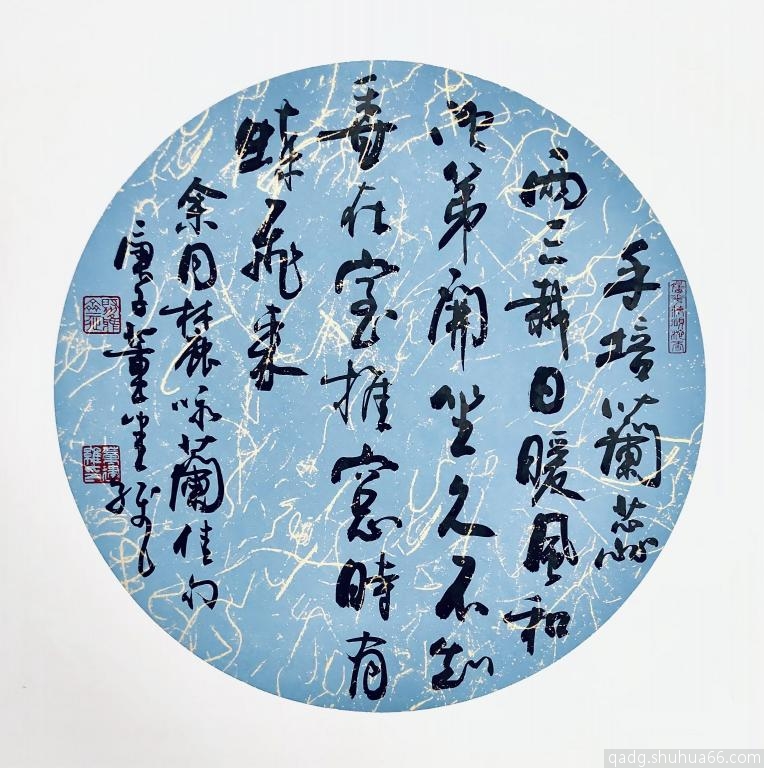 手培蘭蕊
兩三栽日暖風和
次第開坐久不知
香在室推窗時有
蝶飛來
余同麓咏蘭佳句
庚子董
qadg.shuhua66.com